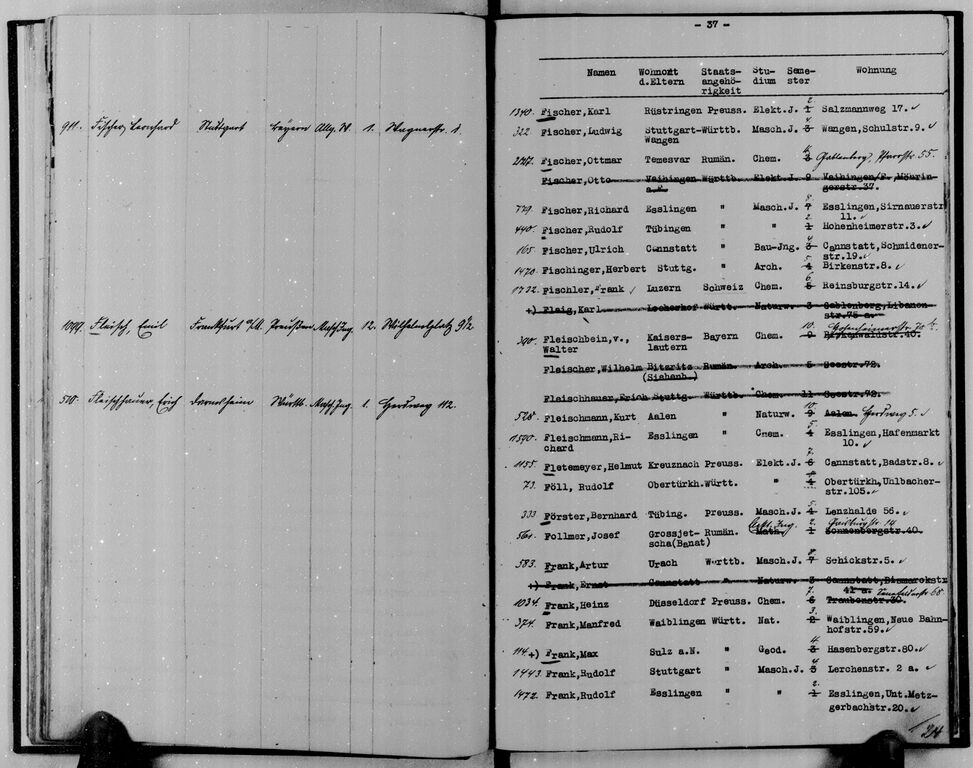 911. Fischer, Bernhard Stuttgart Bayern Allg. W. 1. Wagnerstr.
1099. Fleisch, Emil Frankfurt a/M. Preußen Masch.Ing. 12. Wilhelmsplatz 9 1/2
510. Fleischhauer, Erich Württb. Masch.Ing. 1. Herdweg 112.
- 37 -
Namen Wohnort Staats- Stu- Seme- Wohnung
d.Eltern angehö- dium ster
rigkeit
1340. Fischer,Karl Rüstringen Preuss. Elekt.J. 2. 1 Salzmannweg 17.
322. Fischer,Ludwig Stuttgart-Württb. Masch.J. 4. 3 Wangen,Schulstr.9.
Wangen
Fischer,Ottmar Temesvar Rumän. Chem. 4. 3 Gablenberg, Pfarrstr. 55.
Fischer,Otto Vaihingen Württb. Elekt.J. 9 Vaihingen/F. Möhrin-
gerstr.37.
779. Fischer,Richard Esslingen " Masch.J. 8. 7 Esslingen,Sirnauerstr
11.
440. Fischer,Rudolf Tübingen " " 2 1 Hohenheimerstr.3.
165. Fischer,Ulrich Cannstatt " Bau-Jng. 4 3 Cannstatt,Schmidener-
str.19.
1470. Fischinger,Herbert Stuttg. " Arch. 5. 4 Birkenstr.8.
1732. Fischler,Frank Luzern Schweiz Chem. 6. 5 Reinsburgstr.14.
+) Flaig,Karl Locherhof Württ. Naturw. 3 Gablenberg,Libanon-
str.75 a.
390. Fleischbein,v., Kaisers- Bayern Chem. 10. 9 Birkenwaldstr.40.
Walter lautern
Fleischer,Wilhelm Bitzritz Rumän. Arch. 5 Seestr.72.
(Siebenb.)
Fleischhauer,Erich Stuttg. Württb. Chem. 11 Seestr.72.
528. Fleischmann,Kurt Aalen " Naturw. 10. 9 Aalen. Herdweg 5.
1590. Fleischmann,Ri- Esslingen " Chem. 5. 4 Esslingen,Hafenmarkt
chard 10.
1155. Fletemeyer,Helmut Kreuznach Preuss. Elekt.J. 7. 6 Cannstatt,Badstr.8.
73. Föll, Rudolf Obertürkh.Württ. " 4 Obertürkh,Uhlbacher-
str.105.
333 Förster,Bernhard Tübing. Preuss. Masch.J. 5. 4 Lenzhalde 56.
561. Follmer,Josef Grossjet- Rumän. Elekt. Ing. Math. 2. 1 Freiburgstr. 14 Sonnenbergstr.40.
scha(Banat)
583. Frank,Artur Urach Württb. Masch.J. 8. 7 Schickstr.5.
+) Frank,Ernst Cannstatt " Naturw. 3 Cannstatt,Bismarckstr
41 a.
1034. Frank,Heinz Düsseldorf Preuss. Chem. 7. 6 Traubenstr.30.
374. Frank,Manfred Waiblingen Württ. Nat. 3. 2 Waiblingen,Neue Bahn-
hofstr.59.
114 +) Frank,Max Sulz a.N. " Geod. 4. 3 Hasenbergstr.80.
1443. Frank,Rudolf Stuttgart " Masch.J. 4 3 Lerchenstr. 2 a.
1472. Frank,Rudolf Esslingen " " 2. 1 Esslingen,Unt.Metz-
gerbachstr.20.
24